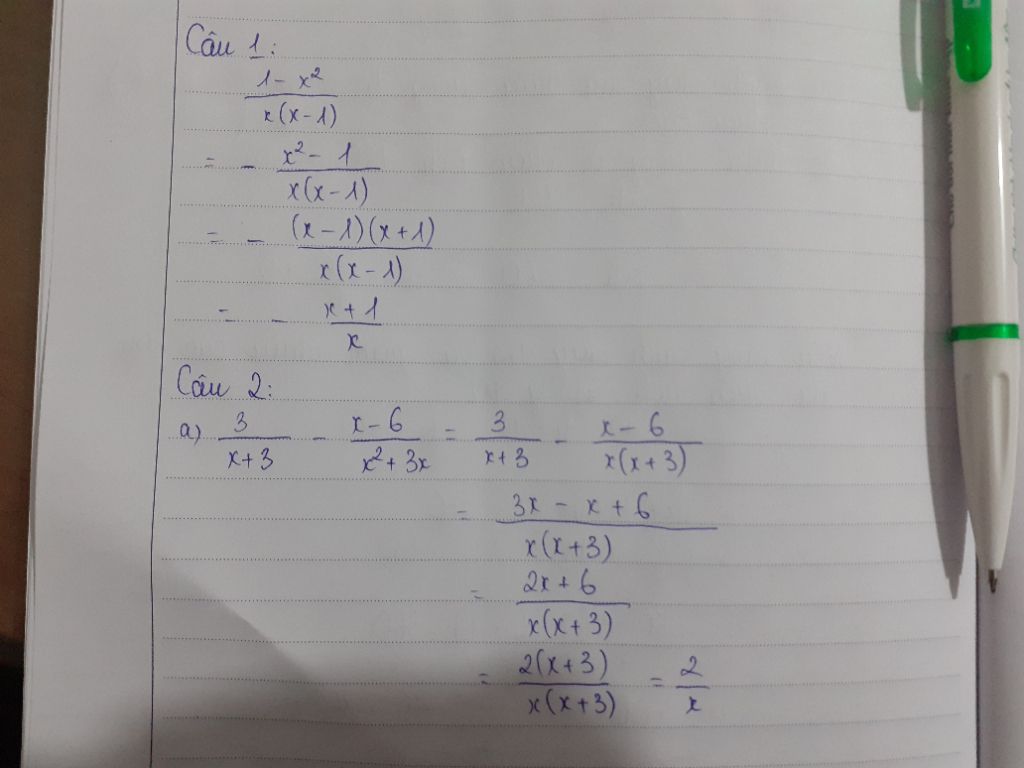 Câu 1:
1 - x²
x(x-1)
= - x² - 1
x(x-1)
= - (x-1)(x+1)
x(x-1)
= - x + 1
x
Câu 2:
a) 3/(x+3) - (x-6)/(x²+3x) = 3/(x+3) - (x-6)/(x(x+3))
= 3x - x + 6
x(x+3)
= 2x + 6
x(x+3)
= 2(x+3)/(x(x+3)) = 2/x